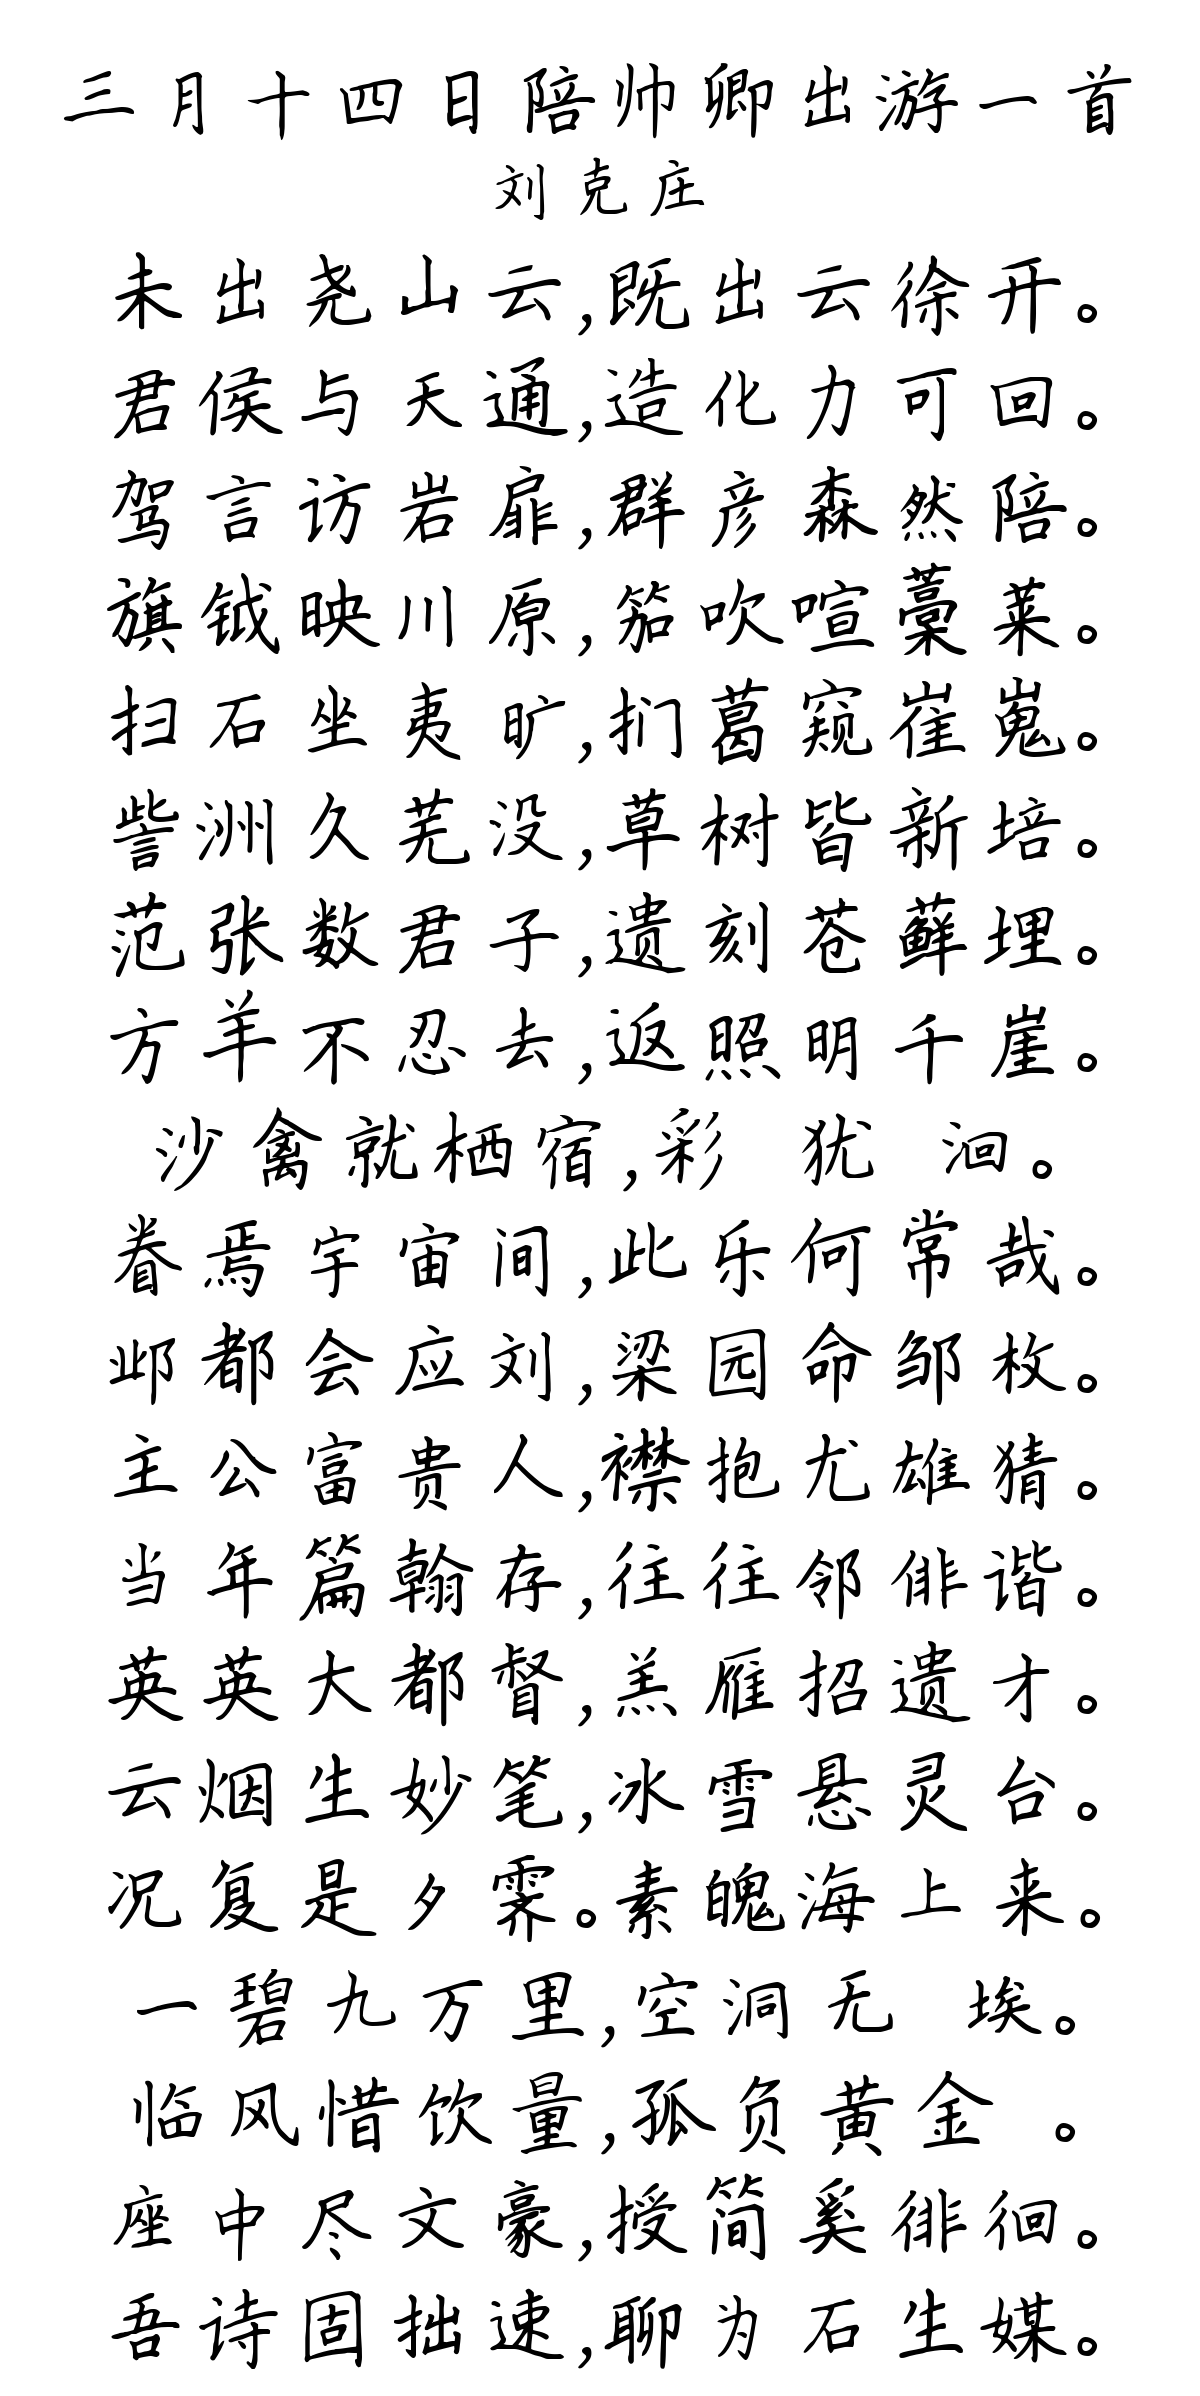 三月十四日陪帅卿出游一首
刘克庄
未出尧山云,既出云徐开。
君侯与天通,造化力可回。
驾言访岩扉,群彦森然陪。
旗钺映川原,笳吹喧藁莱。
扫石坐夷旷,扪葛窥崔嵬。
訾洲久芜没,草树皆新培。
范张数君子,遗刻苍藓埋。
方羊不忍去,返照明千崖。
沙禽就栖宿,彩 犹 洄。
眷焉宇宙间,此乐何常哉。
邺都会应刘,梁园命邹枚。
主公富贵人,襟抱尤雄猜。
当年篇翰存,往往邻俳谐。
英英大都督,羔雁招遗才。
云烟生妙笔,冰雪悬灵台。
况复是夕霁。素魄海上来。
一碧九万里,空洞无 埃。
临风惜饮量,孤负黄金 。
座中尽文豪,授简奚徘徊。
吾诗固拙速,聊为石生媒。